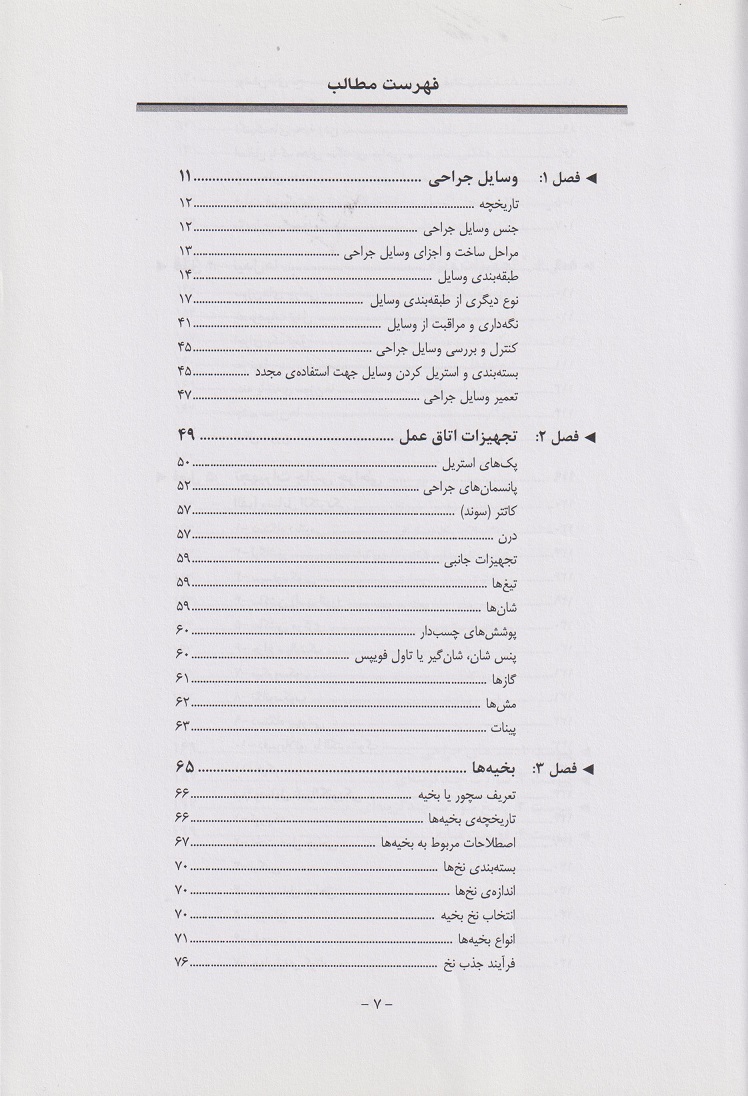 فهرست مطالب
◄ فصل ۱: وسایل جراحی ........ ۱۱
تاریخچه ........ ۱۲
جنس وسایل جراحی ........ ۱۲
مراحل ساخت و اجزای وسایل جراحی ........ ۱۳
طبقه‌بندی وسایل ........ ۱۴
نوع دیگری از طبقه‌بندی وسایل ........ ۱۷
نگه‌داری و مراقبت از وسایل ........ ۴۱
کنترل و بررسی وسایل جراحی ........ ۴۵
بسته‌بندی و استریل کردن وسایل جهت استفاده‌ی مجدد ........ ۴۵
تعمیر وسایل جراحی ........ ۴۷
◄ فصل ۲: تجهیزات اتاق عمل ........ ۴۹
پک‌های استریل ........ ۵۰
پانسمان‌های جراحی ........ ۵۲
کاتتر (سوند) ........ ۵۷
درن ........ ۵۷
تجهیزات جانبی ........ ۵۹
تیغ‌ها ........ ۵۹
شان‌ها ........ ۵۹
پوشش‌های چسب‌دار ........ ۶۰
پنس شان، شان‌گیر یا تاول فوییپس ........ ۶۰
گازها ........ ۶۱
مش‌ها ........ ۶۲
پینات ........ ۶۳
◄ فصل ۳: بخیه‌ها ........ ۶۵
تعریف سچور یا بخیه ........ ۶۶
تاریخچه‌ی بخیه‌ها ........ ۶۶
اصطلاحات مربوط به بخیه‌ها ........ ۶۷
بسته‌بندی نخ‌ها ........ ۷۰
اندازه‌ی نخ‌ها ........ ۷۰
انتخاب نخ بخیه ........ ۷۰
انواع بخیه‌ها ........ ۷۱
فرآیند جذب نخ ........ ۷۶
- ۷ -